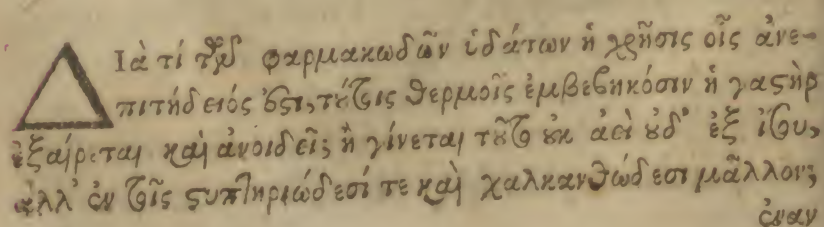 Διὰ τί τῶν φαρμακωδῶν ὑδάτων ἡ χρῆσις οἷς ἀνε-
πιτήδειός ἐστι, τούτοις θερμοῖς ἐμβεβηκόσιν ἡ γαστὴρ
ἐξαίρεται καὶ ἀνοιδεῖ; ἢ γίνεται τοῦτο οὐκ ἀεὶ οὐδ' ἐξ ἴσου,
ἀλλ' ἐν τοῖς στυπτηριώδεσί τε καὶ χαλκανθώδεσι μᾶλλον;
ἐναν